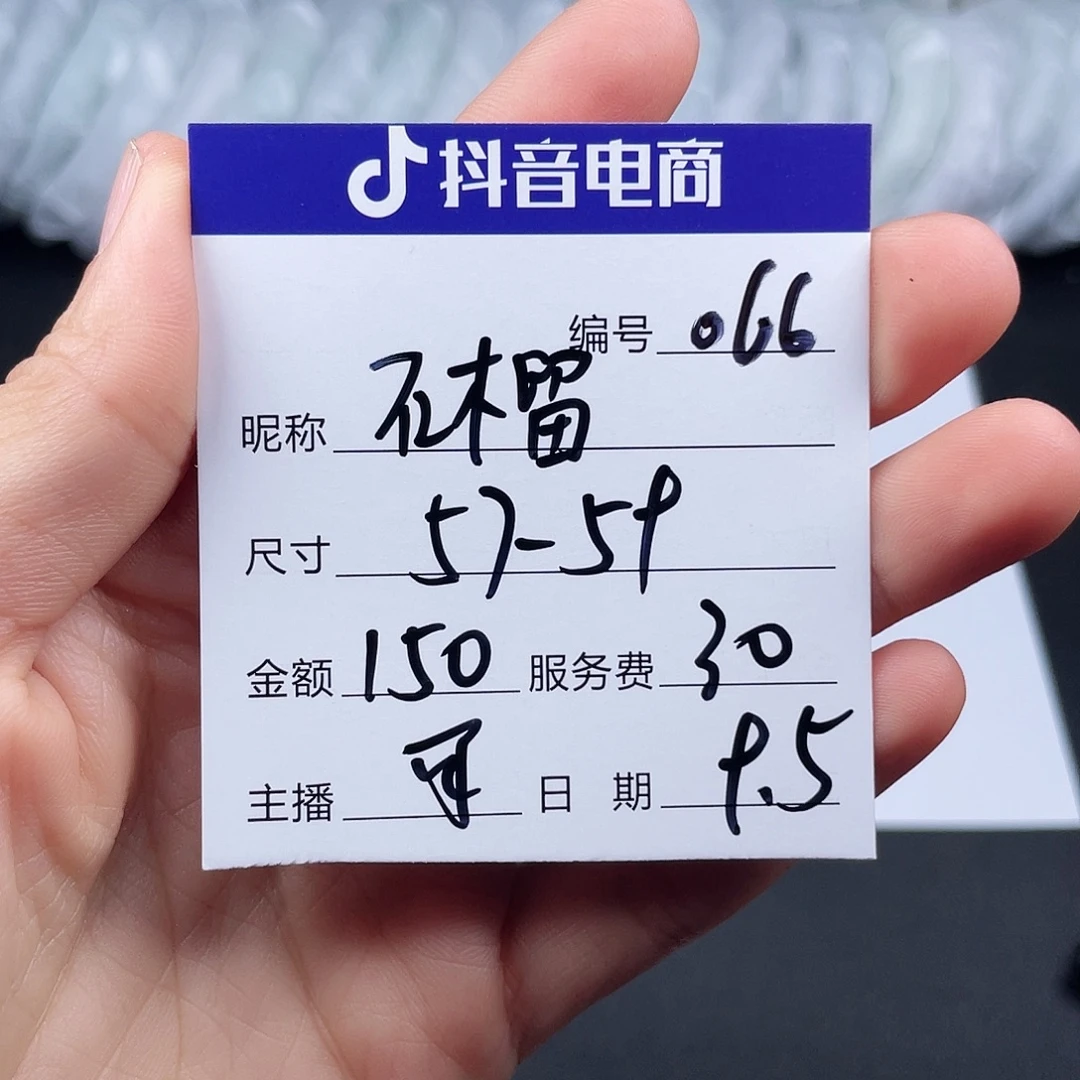 抖音电商
编号 066
昵称 石榴
尺寸 57-59
金额 150 服务费 30
主播 日 期 9.5